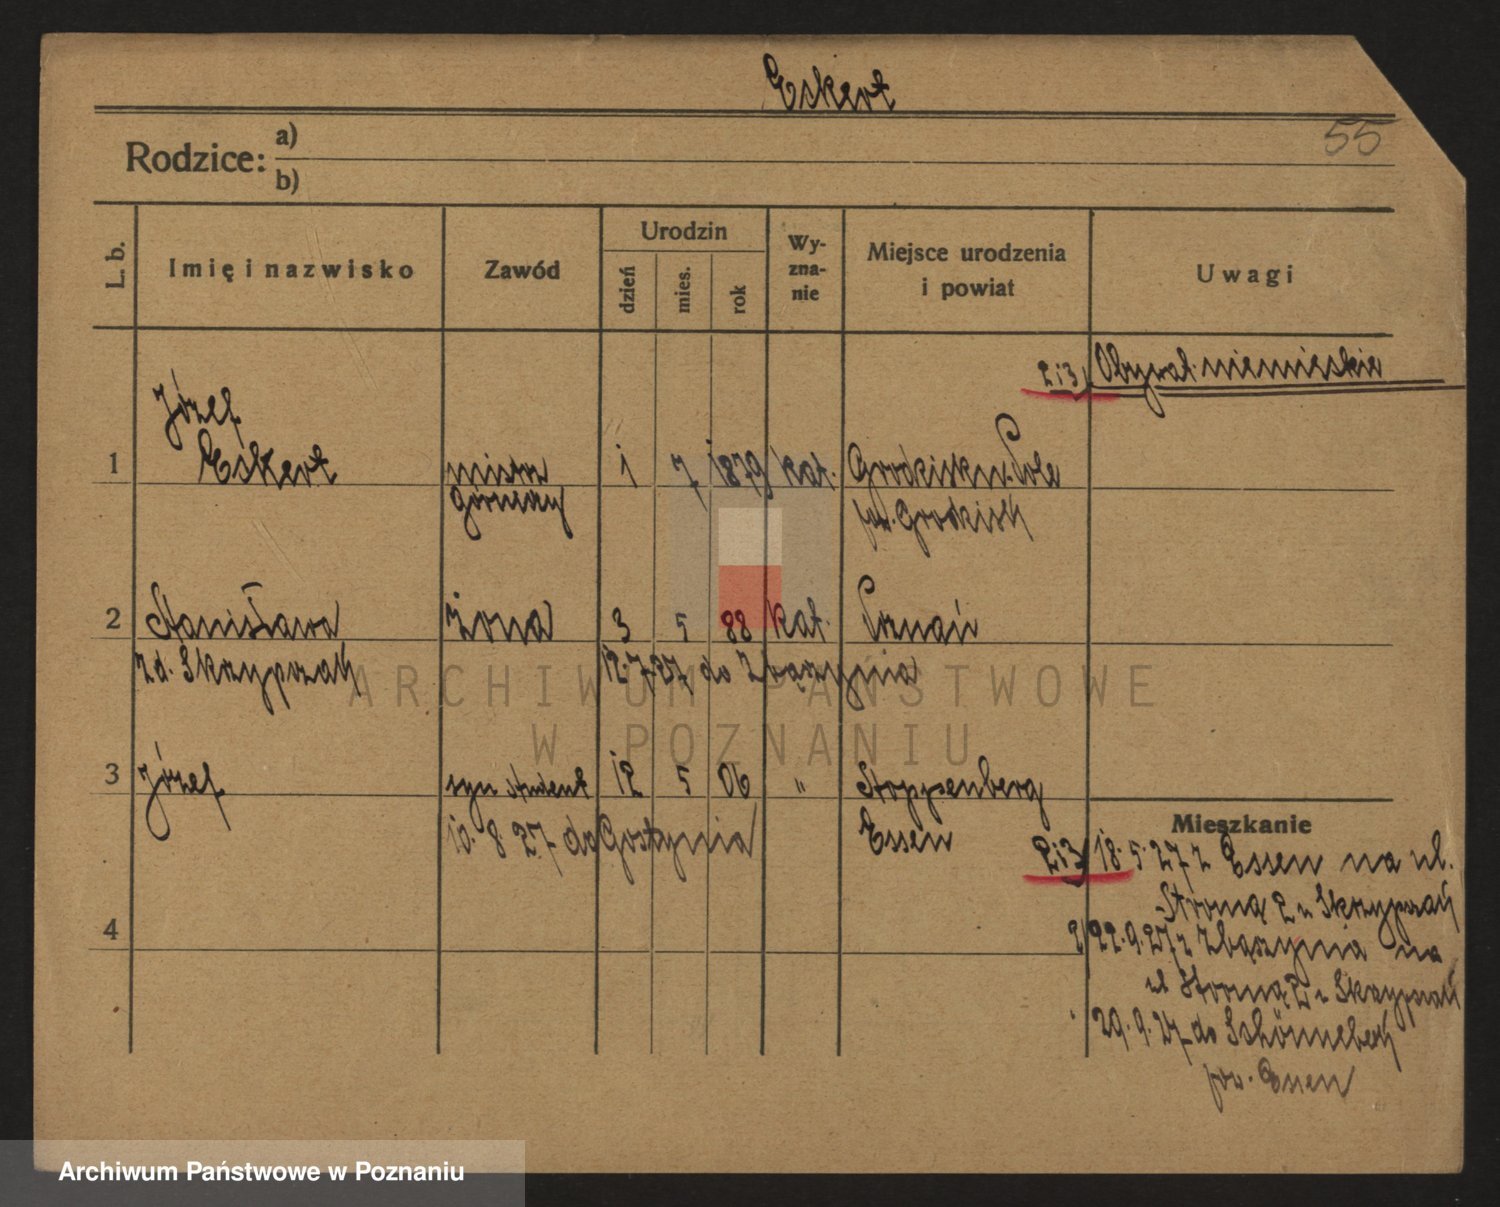 Eskert
55
Rodzice: a)
b)
L. b.
Imię i nazwisko
Zawód
Urodzin
dzień
mies.
rok
Wy-
zna-
nie
Miejsce urodzenia
i powiat
Uwagi
2i3) Obywat. niemieckie
Józef
1 Eskert mistrz 1 7 1879 kat. Grodzisk
górniczy pow. Grodzisk
2 Stanisława żona 3 5 88 kat. Poznań
zd. Skrzypczak 12.7.27 do Zbąszynia
3 Józef syn student 12 5 06 " Stoppenberg
10. 8 27 do Gostynia Essen
4
Mieszkanie
2i3) 18.5.27 z Essen na ul.
Stromą 2 u Skrzypczak
2) 22.9.27 z Zbąszynia na
ul Stromą 2 u Skrzypczak
29.9.27 do Schönnebeck
pow. Essen
ARCHIWUM PAŃSTWOWE
W POZNANIU
Archiwum Państwowe w Poznaniu